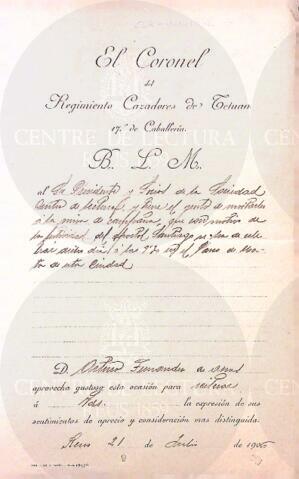 El Coronel
del
Regimiento Cazadores de Tetuan
17.º de Caballería.
B. L. M.
al Sr. Presidente y Junta de la Sociedad
Centro de Lectura y tiene el gusto de invitarles
á la misa de campaña, que con motivo de
la festividad del Apostol Santiago se ha de cele
brar dicho día á las 9 en el Paseo de
de esta Ciudad
D. Arturo Fernandez de
aprovecha gustoso esta ocasión para reiterar
á Vds. la expresión de sus
sentimientos de aprecio y consideración mas distinguida.
Reus 21 de Julio de 1906
CENTRE DE LECTURA